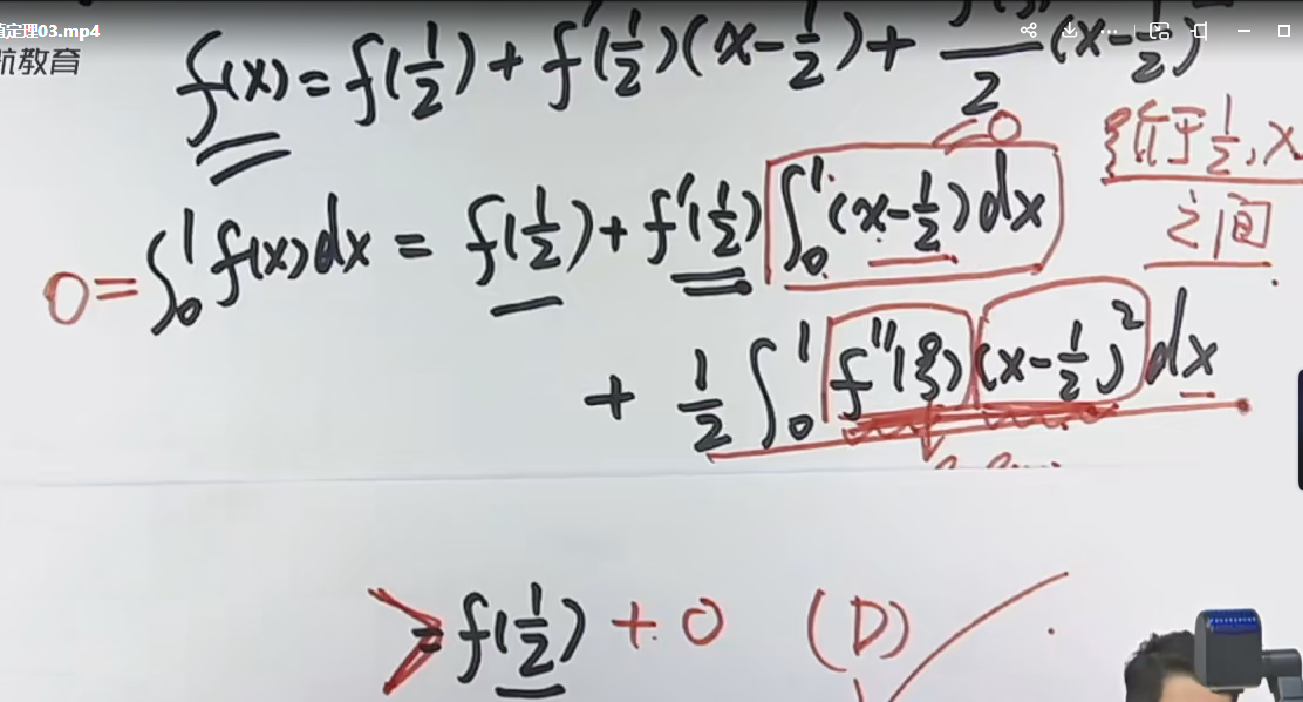 值定理03.mp4
航教育
f(x) = f(1/2) + f'(1/2)(x - 1/2) + f''(ξ)/2 (x - 1/2)²
0
ξ介于1/2, x
之间
0 = ∫₀¹ f(x)dx = f(1/2) + f'(1/2) ∫₀¹ (x - 1/2)dx
+ 1/2 ∫₀¹ f''(ξ)(x - 1/2)² dx
> = f(1/2) + 0 (D)